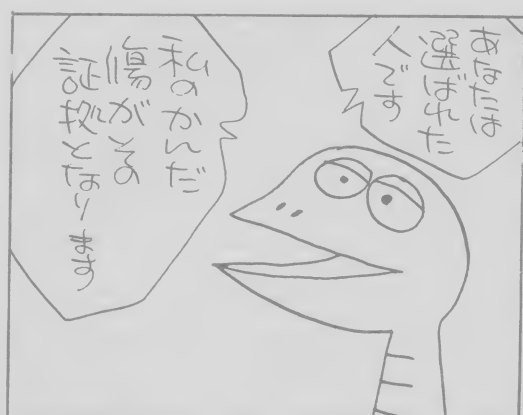 あなたは
選ばれた
人です
私のかんだ
傷がその
証拠となります